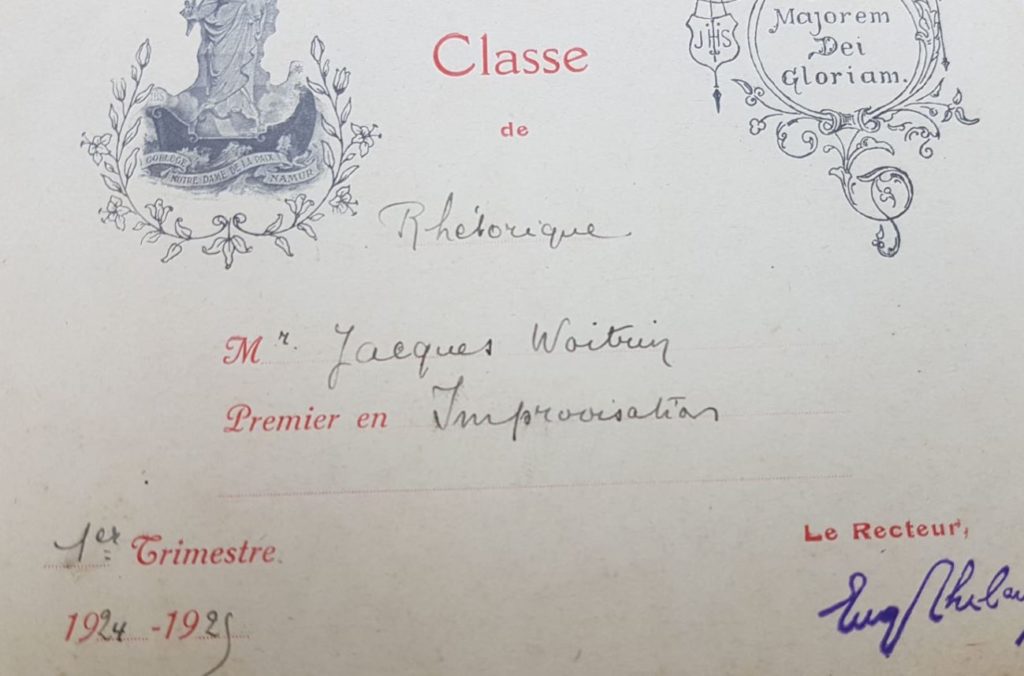 Majorem
Dei
Gloriam.
JHS
Classe
de
COLLEGE
NOTRE DAME DE LA PAIX
NAMUR
Rhétorique
Mr. Jacques Woitrin
Premier en Improvisation
1er Trimestre.
1924-1925
Le Recteur,
Eug